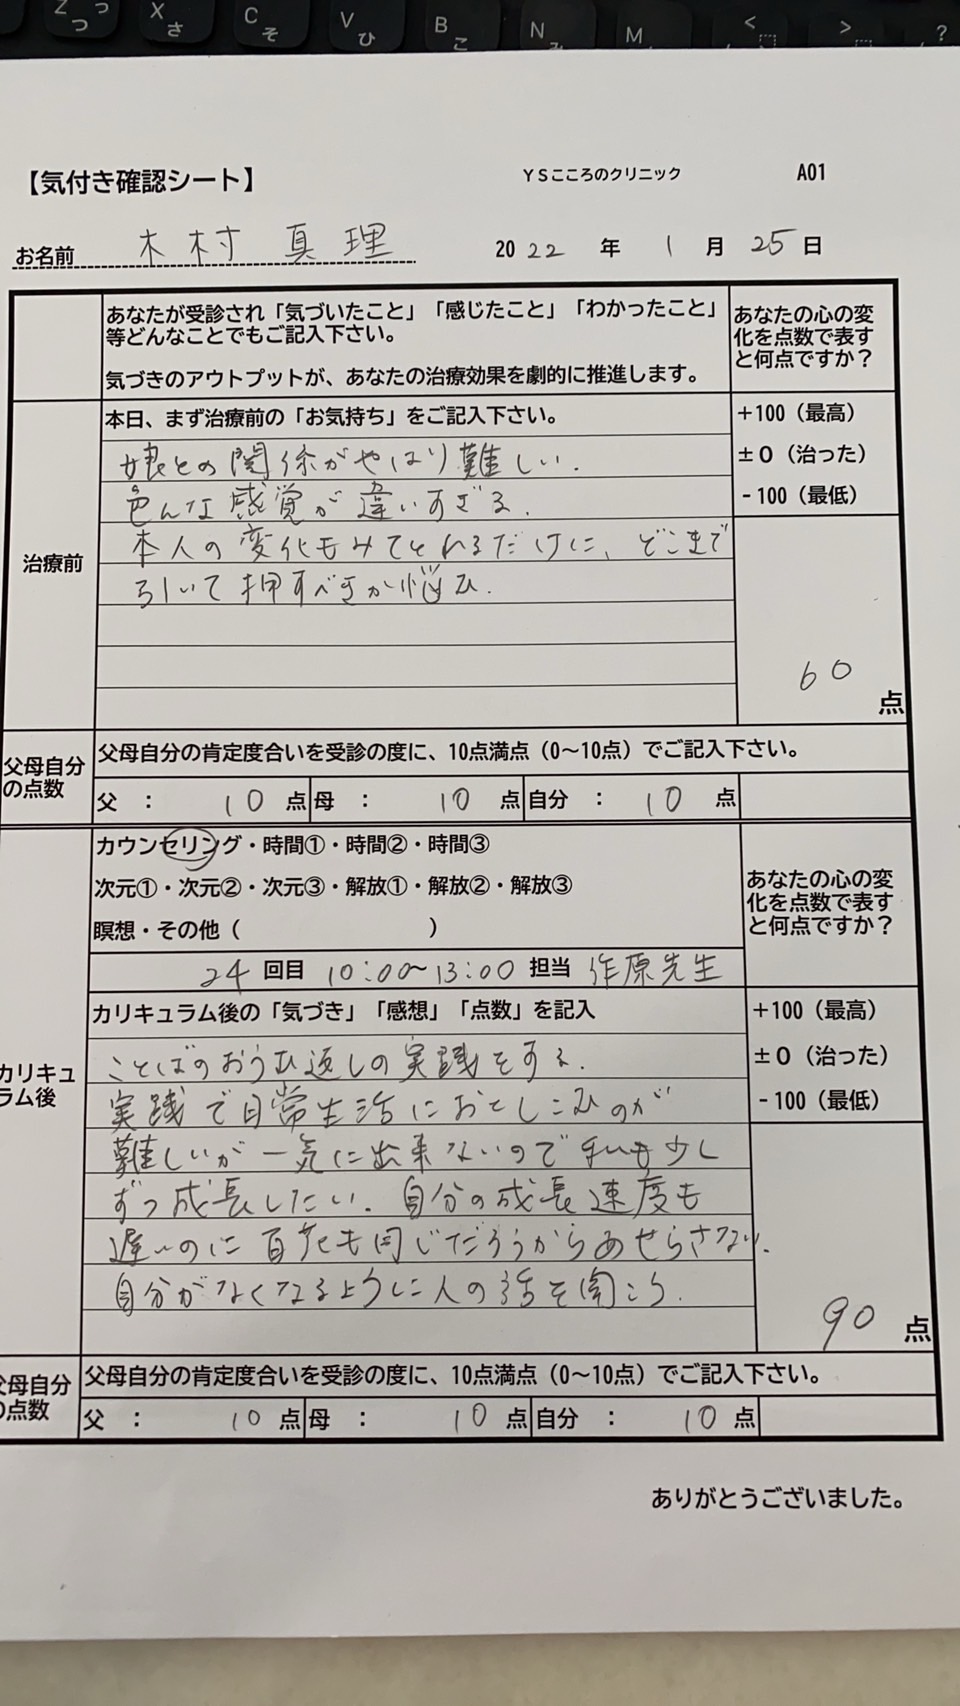 Z っ
つ
X
さ
C
そ
V
ひ
B
こ
N
み
M
<
>
?
【気付き確認シート】
YSこころのクリニック
A01
お名前 木村 真理
2022年 1月 25日
あなたが受診され「気づいたこと」「感じたこと」「わかったこと」
等どんなことでもご記入下さい。
気づきのアウトプットが、あなたの治療効果を劇的に推進します。
あなたの心の変
化を点数で表す
と何点ですか？
治療前
本日、まず治療前の「お気持ち」をご記入下さい。
娘との関係がやはり難しい.
色んな感覚が違いすぎる.
本人の変化もみてとれるだけに、どこまで
引いて押すべきか悩む.
+100（最高）
±0（治った）
-100（最低）
60点
父母自分
の点数
父母自分の肯定度合いを受診の度に、10点満点（0～10点）でご記入下さい。
父 ： 10点 母 ： 10点 自分 ： 10点
カウンセリング・時間①・時間②・時間③
次元①・次元②・次元③・解放①・解放②・解放③
瞑想・その他（ ）
24回目 10:00～13:00 担当 作原先生
あなたの心の変
化を点数で表す
と何点ですか？
カリキュ
ラム後
カリキュラム後の「気づき」「感想」「点数」を記入
ことばのおうむ返しの実践をする.
実践で日常生活におとしこむのが
難しいが一気に出来ないので私も少し
ずつ成長したい. 自分の成長速度も
遅いのに百花も同じだろうからあせらさない.
自分がなくなるように人の話を聞こう.
+100（最高）
±0（治った）
-100（最低）
90点
父母自分
の点数
父母自分の肯定度合いを受診の度に、10点満点（0～10点）でご記入下さい。
父 ： 10点 母 ： 10点 自分 ： 10点
ありがとうございました。